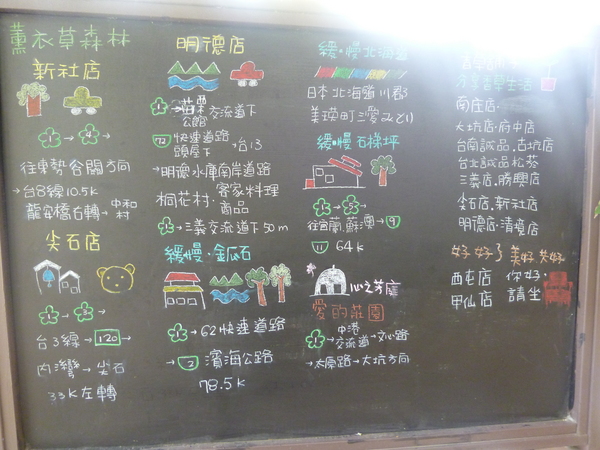 薰衣草森林
新社店
1→4
往東勢谷關方向
→台8線10.5K
龍安橋右轉→中和村
尖石店
1→3
台3線→120
內灣→尖石
33K左轉
明德店
1→苗栗公館交流道下
72快速道路頭屋下→台13
→明德水庫南岸道路
桐花村·客家料理·商品
→三義交流道下50m
緩慢·金瓜石
1→62快速道路
→2濱海公路
78.5K
緩·慢北海道
日本北海道川郡
美瑛町
緩·慢石梯坪
1→5
往宜蘭·蘇澳→9
11 64K
心之芽庭
愛的莊園
1→中港交流道→文心路
→太原路→大坑方向
分享香草生活
南庄店·
大坑店·府中店
台南誠品·古坑店
台北誠品松菸
三義店·勝興店
尖石店·新社店
明德店·清境店
好好了美好失好
西屯店 你好·
甲仙店 請坐